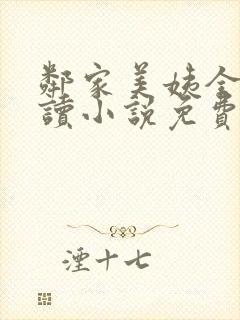 鄰家美姨全
讀小說免費
湮十七